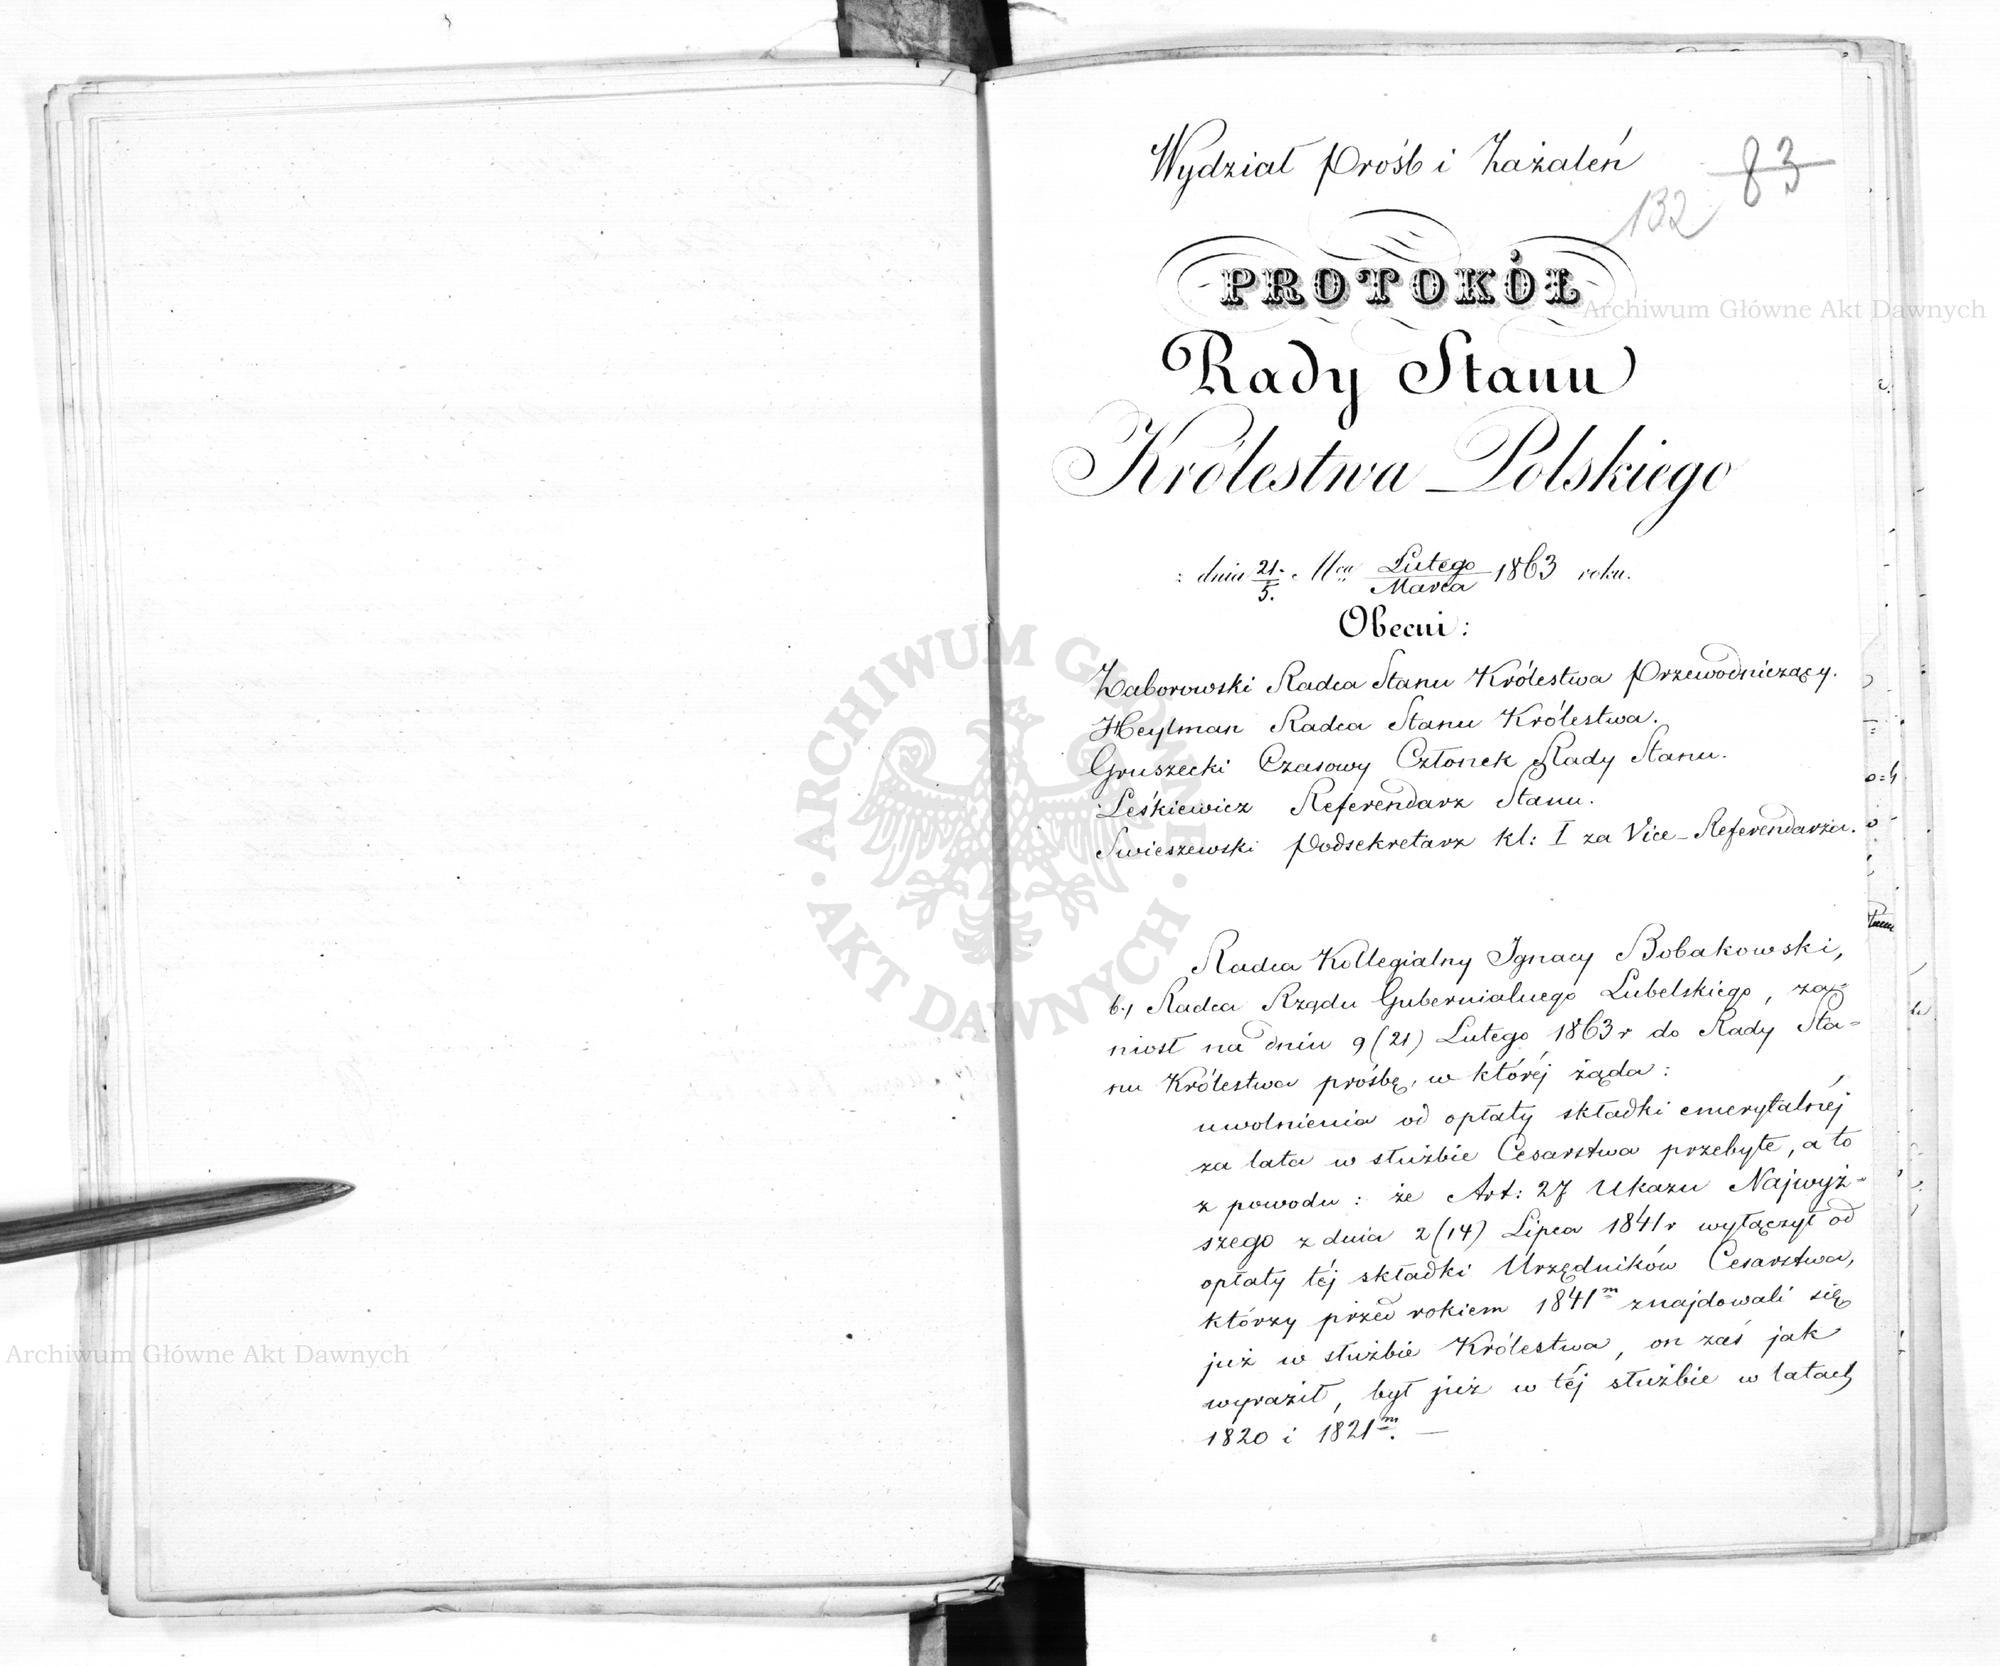 Wydział Prośb i Zażaleń
83
132
PROTOKÓŁ
Rady Stanu
Królestwa Polskiego
dnia 21/5. Mca Lutego/Marca 1863 roku.
Obecni:
Zaborowski Radca Stanu Królestwa Przewodniczący.
Heylman Radca Stanu Królestwa.
Gruszecki Czasowy Członek Rady Stanu.
Leśkiewicz Referendarz Stanu.
Swieszewski Podsekretarz kl: I za Vice-Referendarza.
Radca Kollegialny Ignacy Bobakowski,
b. Radca Rządu Gubernialnego Lubelskiego, za-
niósł na dniu 9 (21) Lutego 1863 r do Rady Sta-
nu Królestwa prośbę, w któréj żąda:
uwolnienia od opłaty składki emerytalnéj
za lata w służbie Cesarstwa przebyte, a to
z powodu: że Art: 27 Ukazu Najwyż-
szego z dnia 2 (14) Lipca 1841 r wyłączył od
opłaty téj składki Urzędników Cesarstwa,
którzy przed rokiem 1841m znajdowali się
już w służbie Królestwa, on zaś jak
wyraził, był już w téj służbie w latach
1820 i 1821m. —
Archiwum Główne Akt Dawnych
ARCHIWUM GŁÓWNE AKT DAWNYCH
Archiwum Główne Akt Dawnych